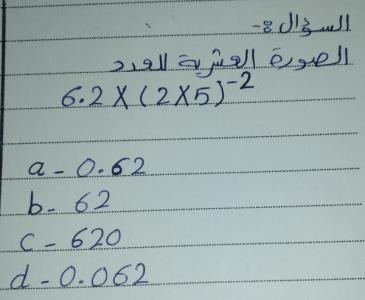 السؤال :-
الصورة العشرية للعدد
6.2 × (2×5)⁻²
a - 0.62
b - 62
c - 620
d - 0.062